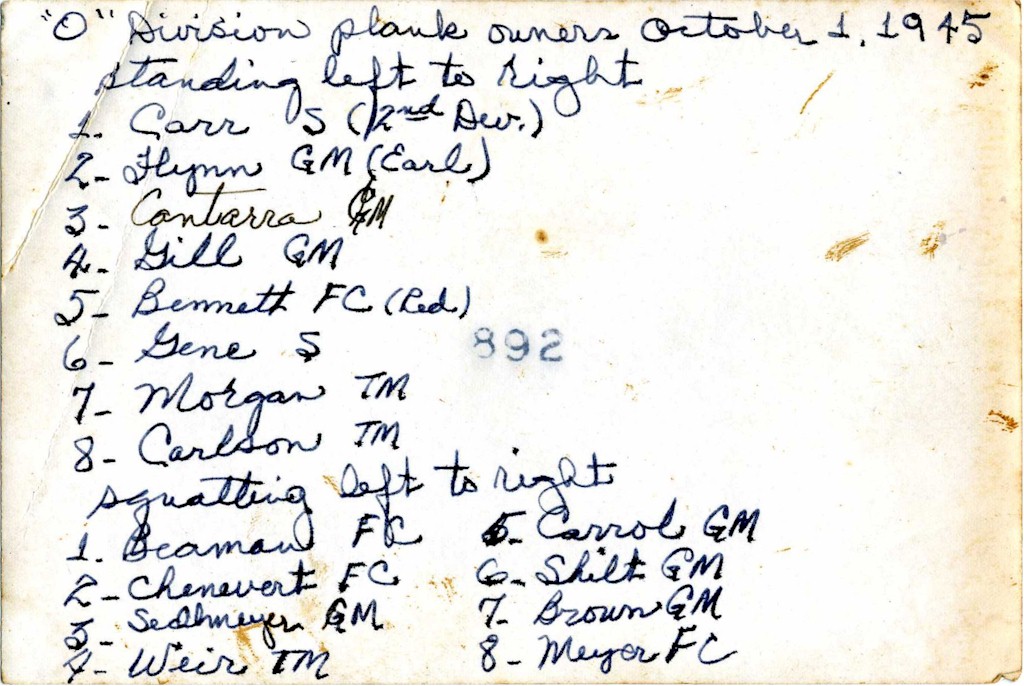 "O" Division plank owners October 1, 1945
standing left to right
1- Carr S (2nd Div.)
2- Flynn GM (Earl)
3- Cantarra GM
4- Gill GM
5- Bennett FC (Red)
6- Gene S
892
7- Morgan TM
8- Carlson TM
squatting left to right
1. Beaman FC 5- Carrol GM
2- Chenevert FC 6- Shilt GM
3- Sedlmeyer GM 7- Brown GM
4- Weir TM 8- Meyer FC